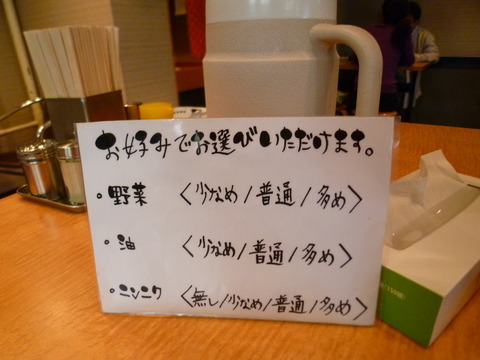 お好みでお選びいただけます。
・野菜 〈少なめ/普通/多め〉
・油 〈少なめ/普通/多め〉
・ニンニク 〈無し/少なめ/普通/多め〉